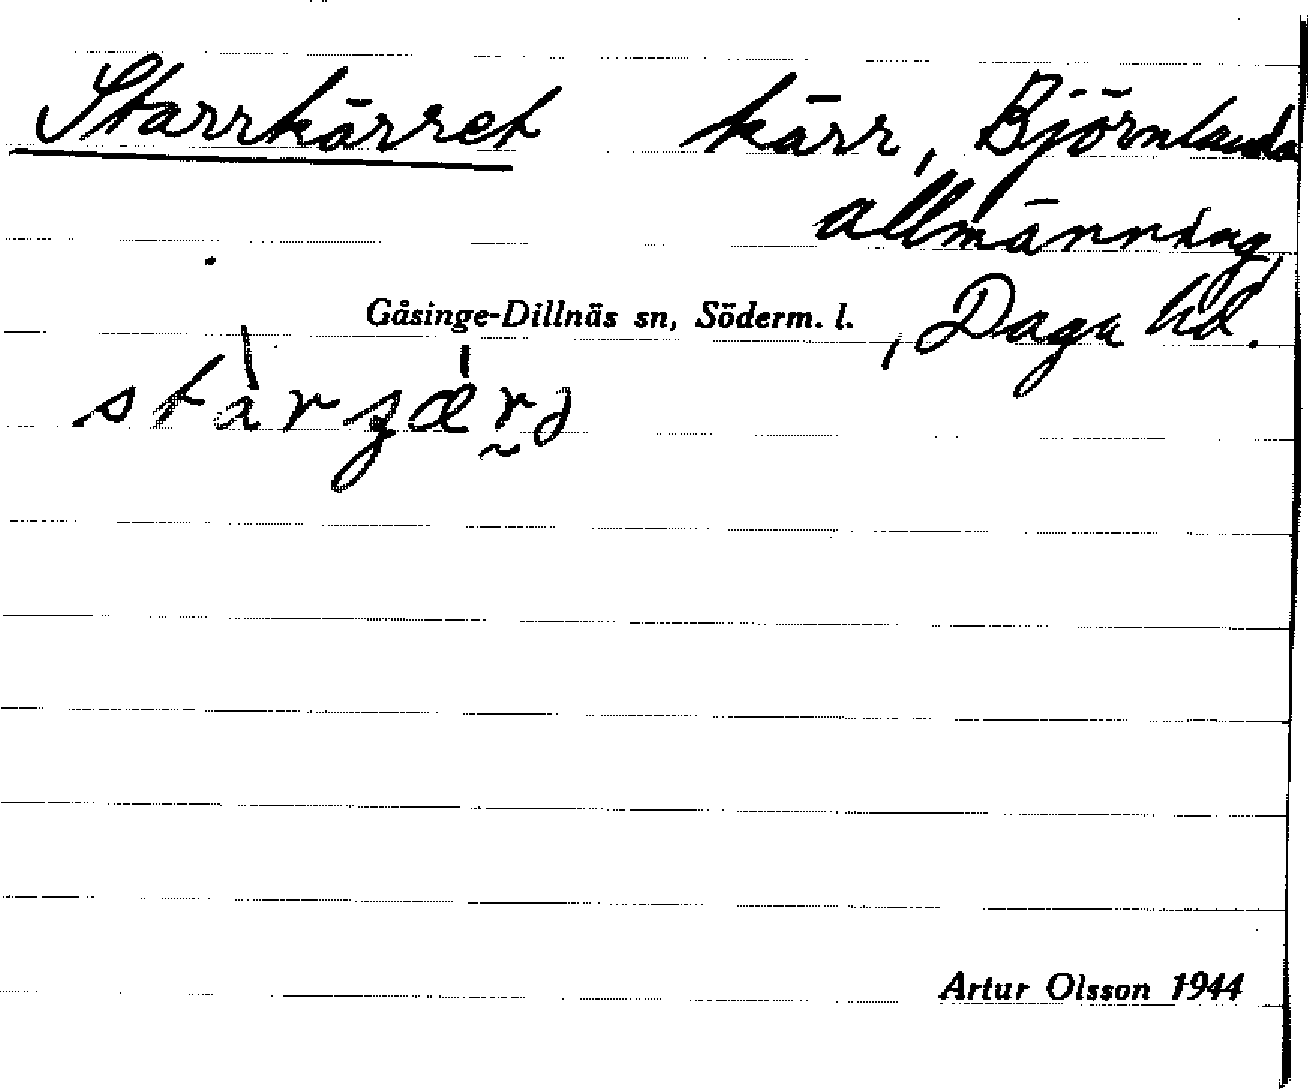 Starrkärret kärr, Björnlunda
allmänning,
Gåsinge-Dillnäs sn, Söderm. l. , Daga hd.
Artur Olsson 1944